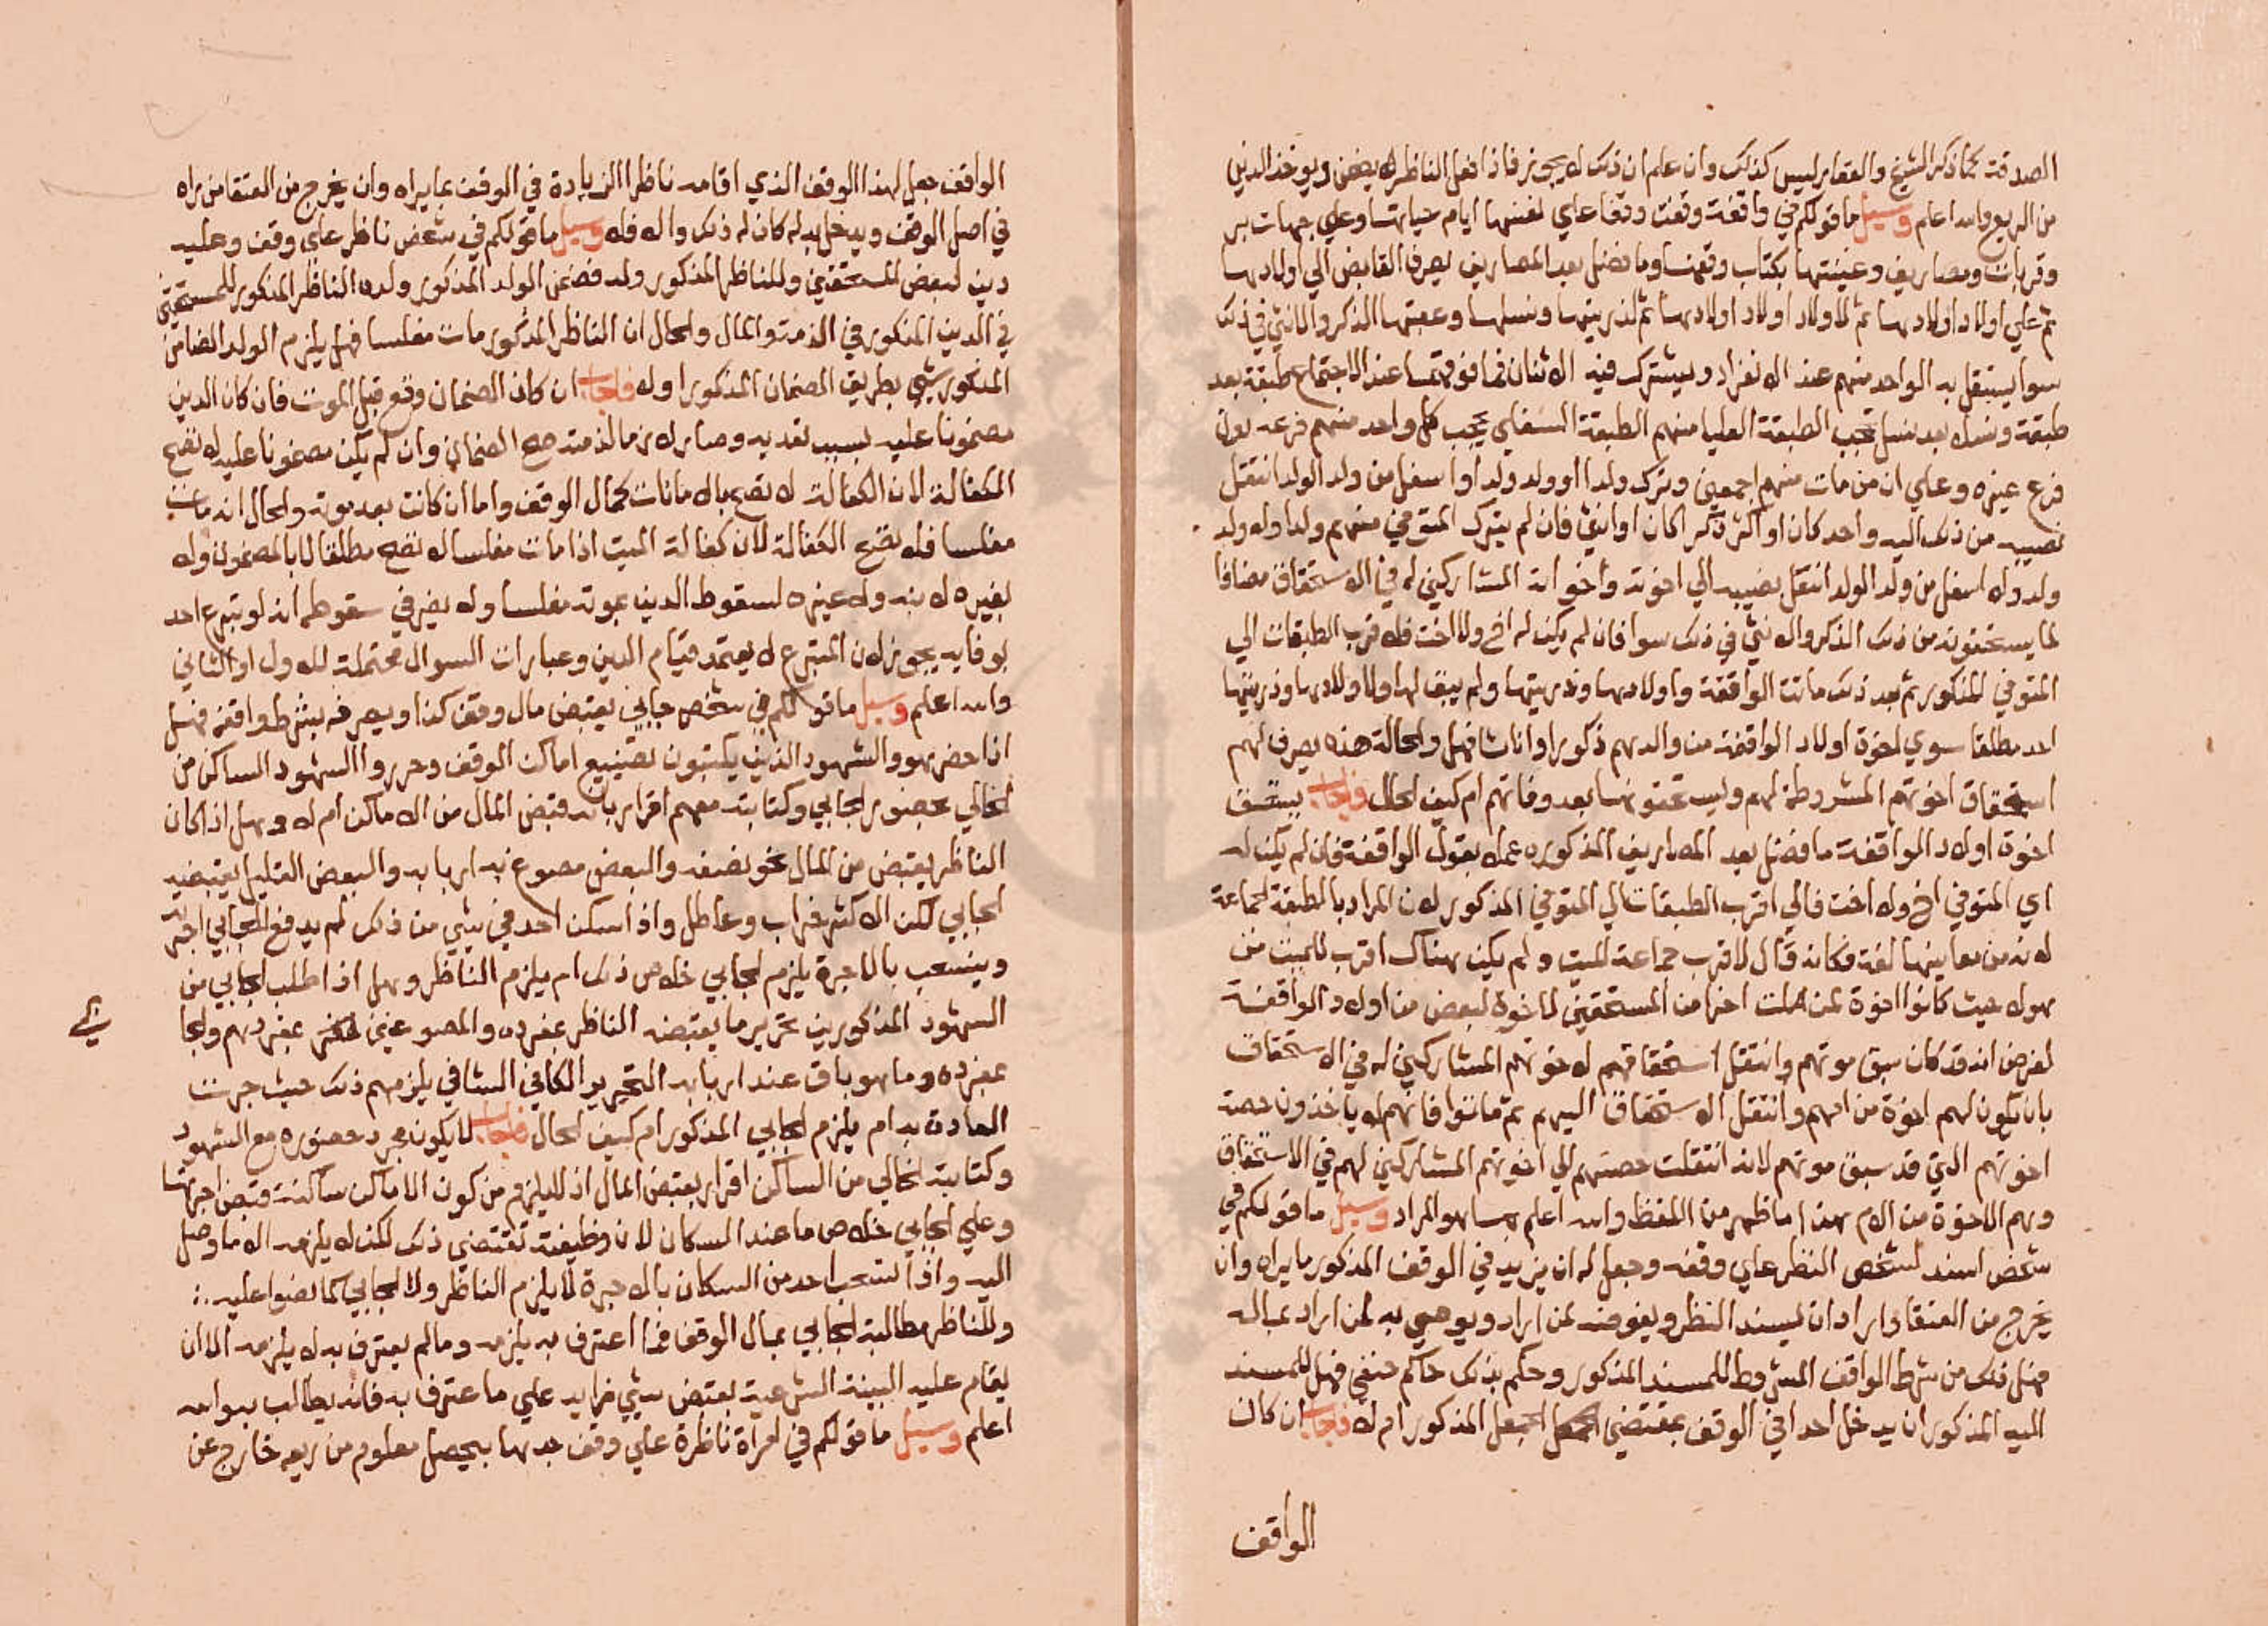 الصدقة كما ذكر الشيخ والعقار ليس كذلك وان علم ان ذلك لا يجوز فاذا فعل الناظر لا يضمن ويوخذ الدين
من الريع والله اعلم وسيل ما قولكم في واقفة وقفت وقفا علي نفسها ايام حياتها وعلي جهات بر
وقربات ومصاريف وعينتها بكتاب وقفها وما فضل بعد المصاريف يصرف الفايض الي اولادها
ثم علي اولاد اولادها ثم لاولاد اولاد اولادها ثم لذريتها ونسلها وعقبها الذكر والانثي في ذلك
سوا يستقل به الواحد منهم عند الانفراد ويشترك فيه الاثنان فما فوقهما عند الاجتماع طبقة بعد
طبقة ونسلا بعد نسل تحجب الطبقة العليا منهم الطبقة السفلي يحجب كل واحد منهم فرعه دون
فرع غيره وعلي ان من مات منهم اجمعين وترك ولدا او ولد ولد او اسفل من ولد الولد انتقل
نصيبه من ذلك اليه واحد كان او اكثر ذكرا كان او انثي فان لم يترك المتوفي منهم ولدا ولا ولد
ولد ولا اسفل من ولد الولد انتقل نصيبه الي اخوته واخواته المشاركين له في الاستحقاق مضافا
لما يستحقونه من ذلك الذكر والانثي في ذلك سوا فان لم يكن له اخ ولا اخت فلاقرب الطبقات الي
المتوفي المذكور ثم بعد ذلك ماتت الواقفة واولادها وذريتها ولم يبق لها ولا ولادها وذريتها
احد مطلقا سوي اخوة اولاد الواقفة من والدهم ذكورا واناثا فهل والحالة هذه يصرف لهم
استحقاق اخوتهم المشروطة لهم ويستحقونها بعد وفاتهم ام كيف الحال فاجاب يستحق
اخوة اولاد الواقفة ما فضل بعد المصاريف المذكوره عملا بقول الواقفة فان لم يكن له
اي المتوفي اخ ولا اخت فالي اقرب الطبقات الي المتوفي المذكور لان المراد بالطبقة الجماعة
لانه من معانيها لغة فكانه قال لاقرب جماعة الميت ولم يكن هناك اقرب للميت من
هولا حيث كانوا اخوة لمن هلك اخرا من المستحقين لما خوة لبعض من اولاد الواقفة
لفرض انه قد كان سبق موتهم وانتقل استحقاقهم لاخوتهم المشاركين له في الاستحقاق
بان يكون لهم اخوة من امهم وانتقل الاستحقاق اليهم ثم ماتوا فانهم لا ياخذون حصة
اخوتهم التي قد سبق موتهم لانه انتقلت حصتهم الي اخوتهم المشاركين لهم في الاستحقاق
وهم الاخوة من الام هذا ما ظهر من اللفظ والله اعلم بما هو المراد وسيل ما قولكم في
شخص اسند لشخص النظر علي وقفه وجعل له ان يزيد في الوقف المذكور ما يراه وان
يخرج من العتقا واراد ان يسند النظر ويفوضه لمن اراد ويوصي به لمن اراد عملا له
فهل ذلك من شرط الواقف المشروط للمسند المذكور وحكم بذلك حاكم حنفي فهل للمسند
اليه المذكور ان يدخل احدا في الوقف بمقتضي الجعل المذكور ام لا فاجاب ان كان
الواقف
الواقف جعل لهذا الوقف الذي اقامه ناظرا الزيادة في الوقف بما يراه وان يخرج من العتقا من راه
في اصل الوقف ويدخل بدله كان له ذلك والا فلا وسيل ما قولكم في شخص ناظر علي وقف وعليه
دين لبعض المستحقين وللناظر المذكور ولد فضمن الولد المذكور ولده الناظر المذكور للمستحقين
في الدين المذكور في الذمة والمال والحال ان الناظر المذكور مات مفلسا فهل يلزم الولد الضامن
المذكور شي بطريق الضمان المذكور او لا فاجاب ان كان الضمان وقع قبل الموت فان كان الدين
مضمونا عليه بسبب تعديه وصار لازما لذمته صح الضمان وان لم يكن مضمونا عليه لا تصح
الكفالة لان الكفالة لا تصح بالامانات كمال الوقف واما ان كانت بعد موته والحال انه مات
مفلسا فلا تصح الكفالة لان كفالة الميت اذا مات مفلسا لا تصح مطلقا لا بالمضمون ولا
بغيره لابنه ولا غيره لسقوط الدين بموته مفلسا ولا يضر في سقوطه انه لو تبرع احد
بوفايه يجوز لان المتبرع لا يعتمد قيام الدين وعبارات السوال محتملة للاول او الثاني
والله اعلم وسيل ما قولكم في شخص جابي يقبض مال وقف كذا ويصرفه بشرط واقفه فهل
اذا حضر هو والشهود الذين يكتبون تصقيع اماكن الوقف وحرروا الشهود الساكن من
الخالي بحضور الجابي وكتابته معهم اقرار بانه قبض المال من الاماكن ام لا وهل اذا كان
الناظر يقبض من المال نحو نصفه والبعض مصوع به اربابه والبعض القليل يقبضه
الجابي لكن الاكثر خراب وعاطل واذا سكن احد في شي من ذلك لم يدفع للجابي اجرته
وينسحب بالاجرة يلزم الجابي خلاص ذلك ام يلزم الناظر وهل اذا طلب الجابي من
الشهود المذكورين تحرير ما يقبضه الناظر بمفرده والمصوعين بمفردهم والجابي
بمفرده وما هو باق عند اربابه التحرير الكافي الشافي يلزمهم ذلك حيث جرت
العادة به ام يلزم الجابي المذكور ام كيف الحال فاجاب لا يكون مجرد حضوره مع الشهود
وكتابته الخالي من الساكن اقرار بقبض المال اذ لا يلزم من كون الاماكن ساكنة قبض اجرتها
وعلي الجابي خلاص ما عند السكان لان وظيفته تقتضي ذلك لكن لا يلزمه الا ما وصل
اليه واذا انسحب احد من السكان بالاجرة لا يلزم الناظر ولا الجابي كما نصوا عليه
وللناظر مطالبة الجابي بمال الوقف فما اعترف به يلزمه وما لم يعترف به لا يلزمه الا ان
يقام عليه البينة الشرعية بقبض شي زايد علي ما عترف به فانه يطالب به والله
اعلم وسيل ما قولكم في امراة ناظرة علي وقف جدها يحصل معلوم من ريعه خارج عن